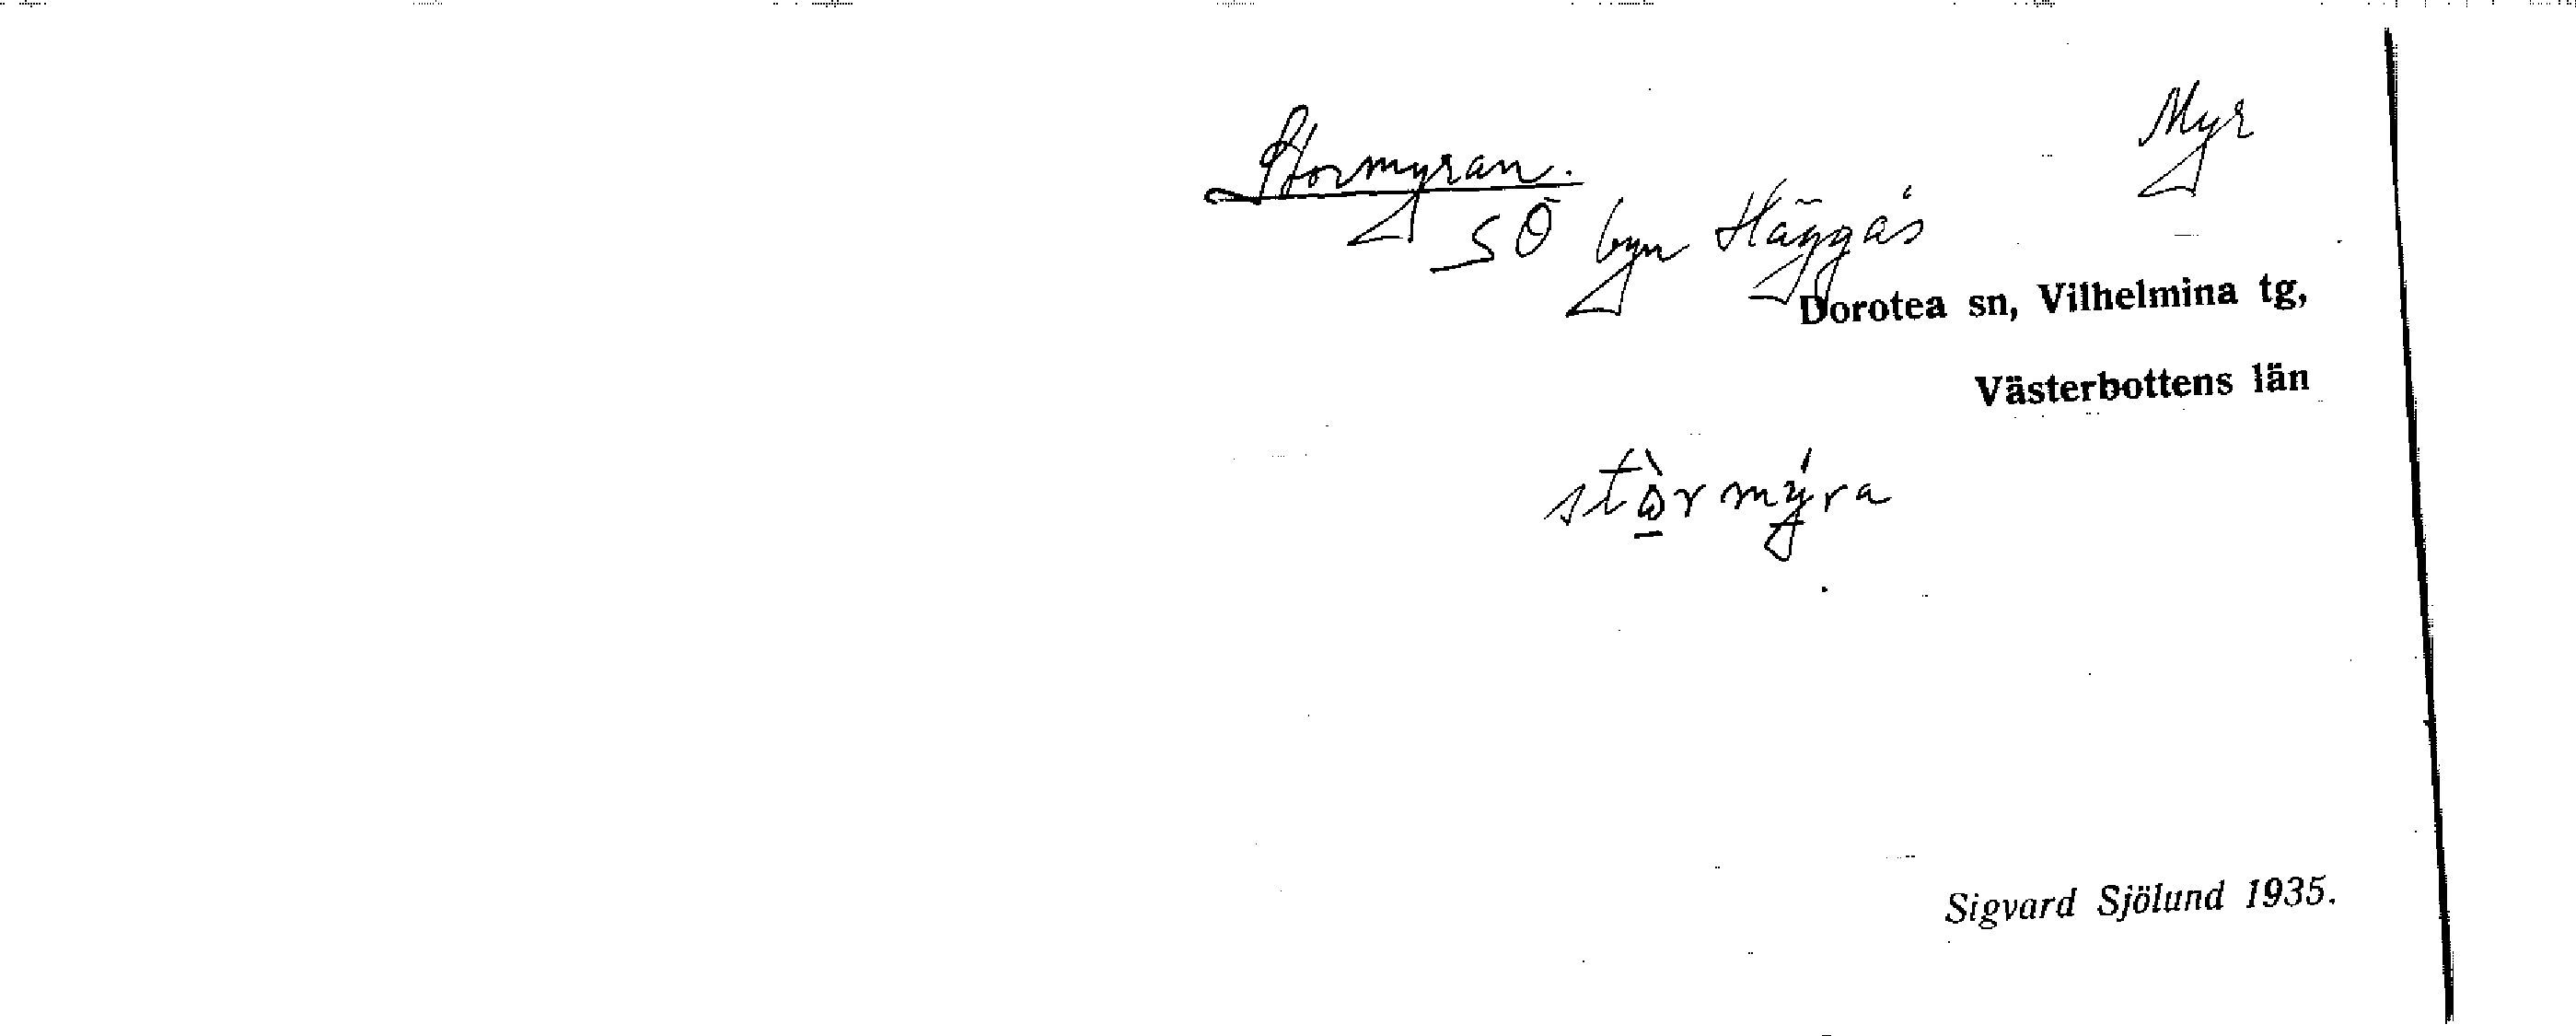 Stormyran.
Myr
SÖ byn Häggås
Dorotea sn, Vilhelmina tg,
Västerbottens län
stò̱rmýra
Sigvard Sjölund 1935.